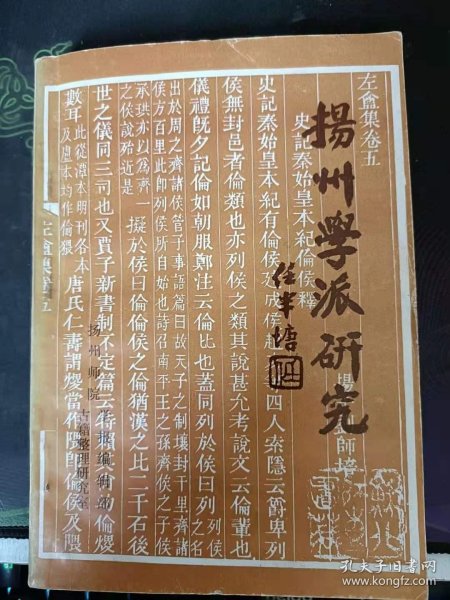 揚州學派研究
任半塘
左盦集卷五
史記秦始皇本紀倫侯釋
師培
史記秦始皇本紀有倫侯建成侯趙
四人索隱云爵卑列
侯無封邑者倫類也亦列侯之類其說甚允考說文云倫輩也
儀禮既夕記倫如朝服鄭注云倫比也蓋同列於侯曰列
列侯之名
出於周之齊諸侯管子事語篇曰故天子之制壤封千里齊諸
侯方百里此卽列侯所自始也詩召南平王之孫齊侯之子
承珙亦以為齊一
之侯說殆近是
擬於侯曰倫倫侯之倫猶漢之比二千石後
世之儀同三司也又賈子新書制不定篇云特賴其尚幼倫煖
數耳
此從潭本明刊各本
及盧本均作倫猥
唐氏仁壽謂煖當作隈卽倫侯及隈
左盦集卷五
扬州师院
学报编辑部
古籍整理研究室
孔夫子旧书网